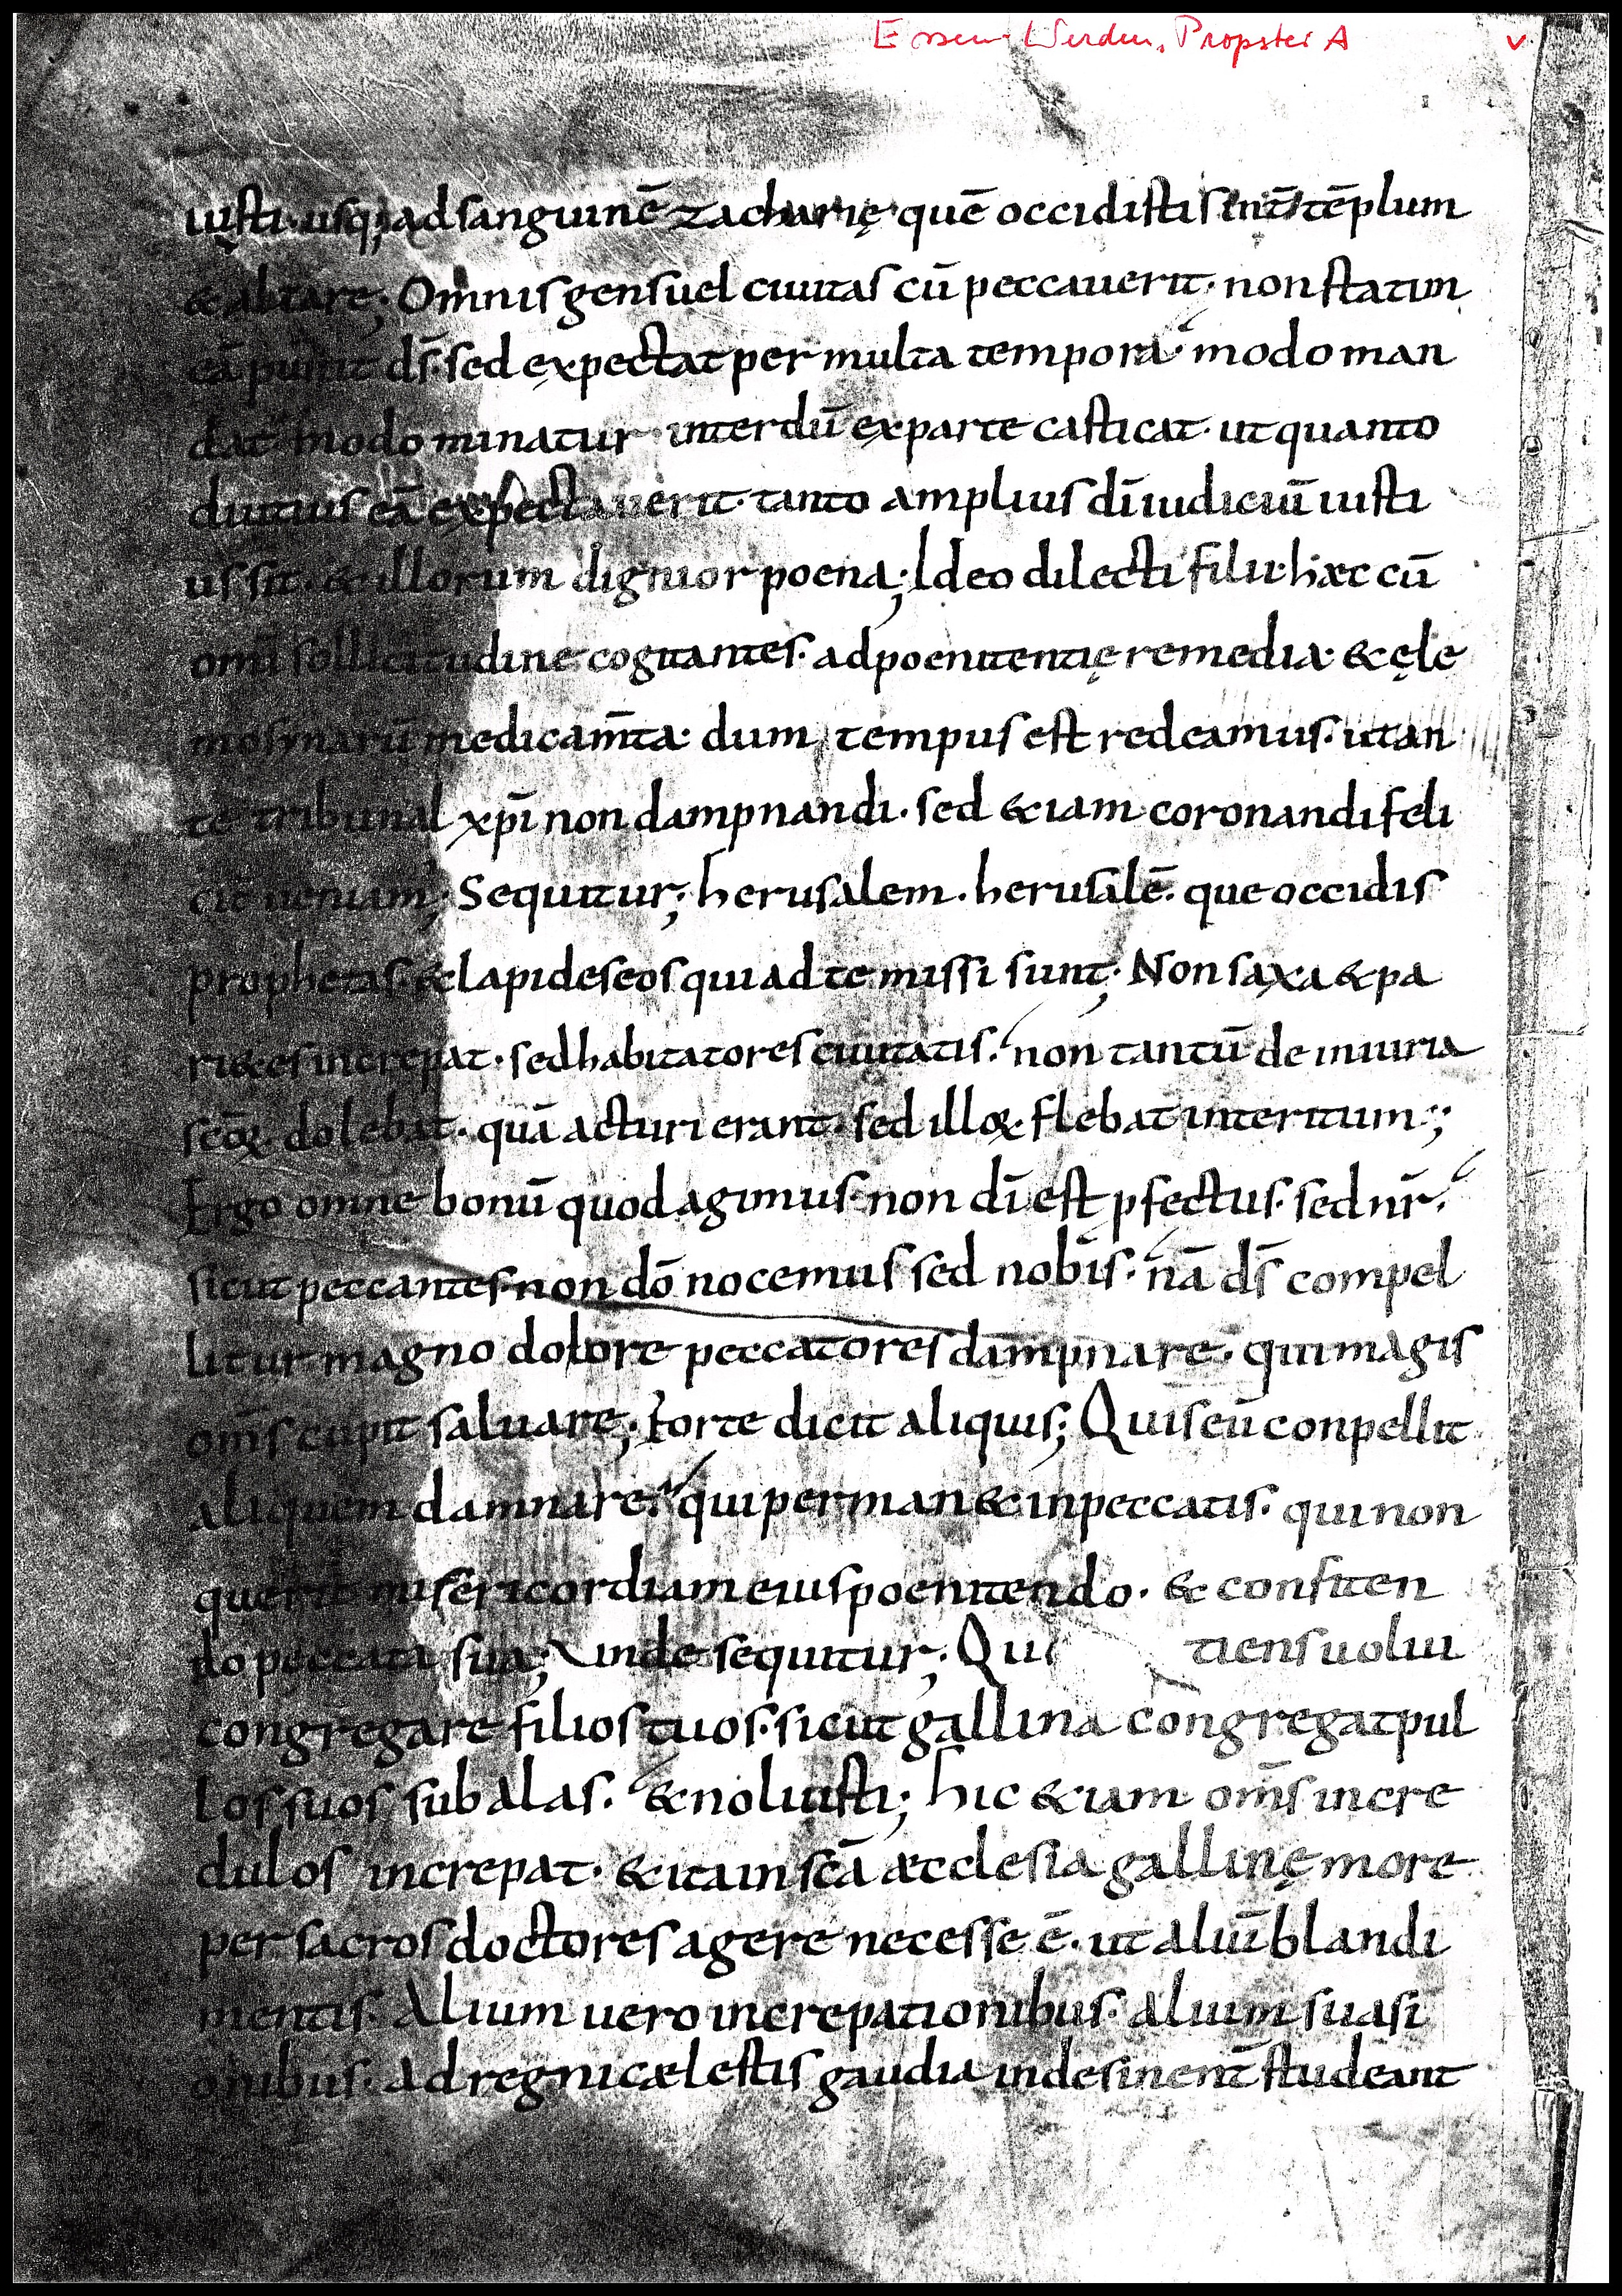 Essen-Werden, Propstei A v
iusti· usq; ad sanguinē zacharię· quē occidistis int̄ tēplum
& altare; Omnis gens uel ciuitas cū peccauerit· non statim
eā punit d̄s· sed expectat per multa tempora· modo man
dat· modo minatur· interdū ex parte casticat· ut quanto
diutius eā expectauerit· tanto amplius dī iudiciū iusti
us sit· & illorum dignior poena; Ideo dilecti filii· hæc cū
omī sollicitudine cogitantes· ad poenitentię remedia· & ęle
mosinarū medicam̄ta· dum tempus est redeamus· ut an
te tribunal xp̄i non dampnandi· sed &iam coronandi feli
cit̄ ueniam; Sequitur; herusalem· herusalē· que occidis
prophetas· & lapides eos qui ad te missi sunt; Non saxa & pa
ri&es increpat· sed habitatores ciuitatis· non tantū de iniuria
sc̄oꝝ dolebat· quā acturi erant· sed illoꝝ flebat interitum;
Ergo omne bonū quod agimus· non dī est ꝓfectus· sed nr̄·
sicut peccantes· non dō nocemus sed nobis· nā d̄s compel
litur magno dolore peccatores dampnare· qui magis
om̄s cupit saluare; Forte dicit aliquis; Quis eū conpellit
aliquem damnare· qui perman& in peccatis· qui non
querit misericordiam eius poenitendo· & confiten
do peccata sua; Unde sequitur; Qu tiens uolui
congregare filios tuos· sicut gallina congregat pul
los suos sub alas· & noluisti; hic &iam om̄s incre
dulos increpat· & ita in sc̄ā æcclesia gallinę more
per sacros doctores agere necesse ē· ut aliū blandi
mentis· Alium uero increpationibus· alium suasi
onibus· ad regni cælestis gaudia indesinent̄ studeant